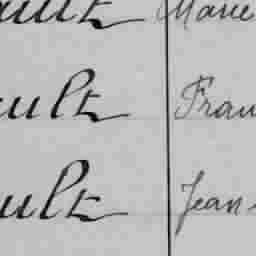 ault Marie
ault Fran
ault Jean